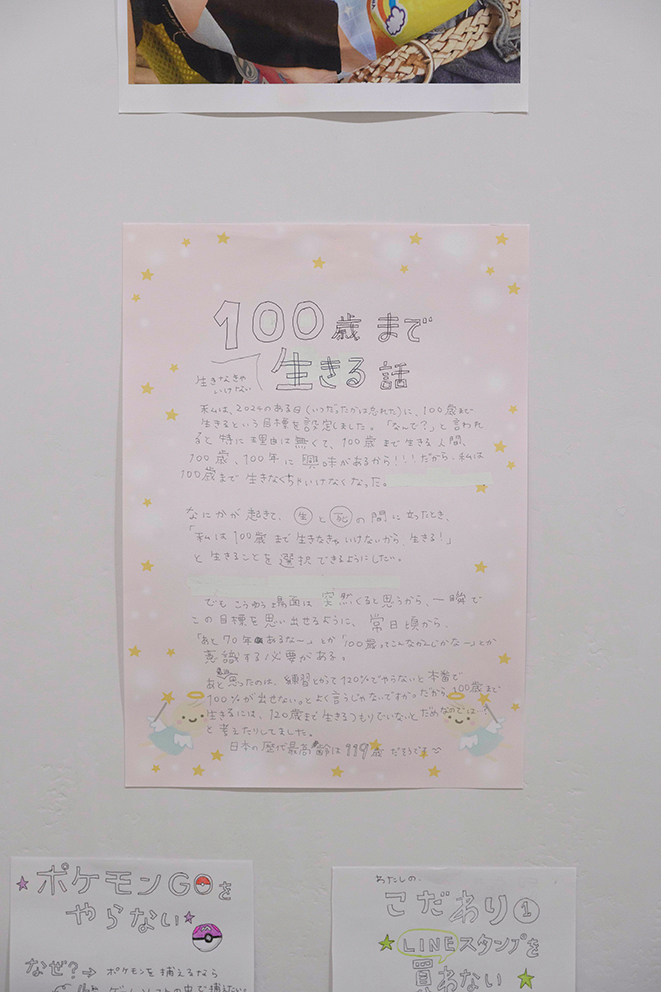 100歳まで
生きなきゃ
いけない
生きる話
私は、2024のある日(いつだったかは忘れた)に、100歳まで
生きるという目標を設定しました。「なんで?」と言われ
ると特に理由は無くて、100歳まで生きる人間、
100歳、100年に興味があるから!!!だから、私は
100歳まで生きなくちゃいけなくなった。
なにかが起きて、生と死の間に立ったとき、
「私は100歳まで生きなきゃいけないから、生きる!」
と生きることを選択できるようにしたい。
でもこうゆう場面は突然くると思うから、一瞬で
この目標を思い出せるように、常日頃から、
「あと70年もあるなー」とか「100歳ってこんなかんじかなー」とか
意識する必要がある。
あと思ったのは、練習とかって120%でやらないと本番で
100%が出せない。とよく言うじゃないですか。だから100歳まで
生きるには、120歳まで生きるつもりでいないとだめなのでは…?
と考えたりしてました。
日本の歴代最高齢は119歳だそうです
ポケモンGOを
やらない
なぜ?→ ポケモンを捕えるなら
ゲームソフトの中で捕えたい
わたしの
こだわり①
LINEスタンプを
買わない